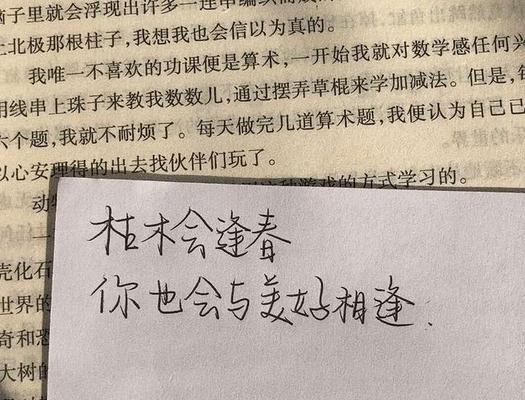 脑子里就会浮现出许多一连串编织
上北极那根柱子,我想我也会信以为真的。
我唯一不喜欢的功课便是算术,一开始我就对数学感任何兴
用线串上珠子来教我数数儿,通过摆弄草棍来学加减法。但是,每
六个题,我就不耐烦了。每天做完几道算术题,我便认为自己已
以心安理得的出去找伙伴们玩了。
游戏的方式学习的。
动
枯木会逢春
你也会与美好相逢.
壳化石
世界的
奇和恐
大树的